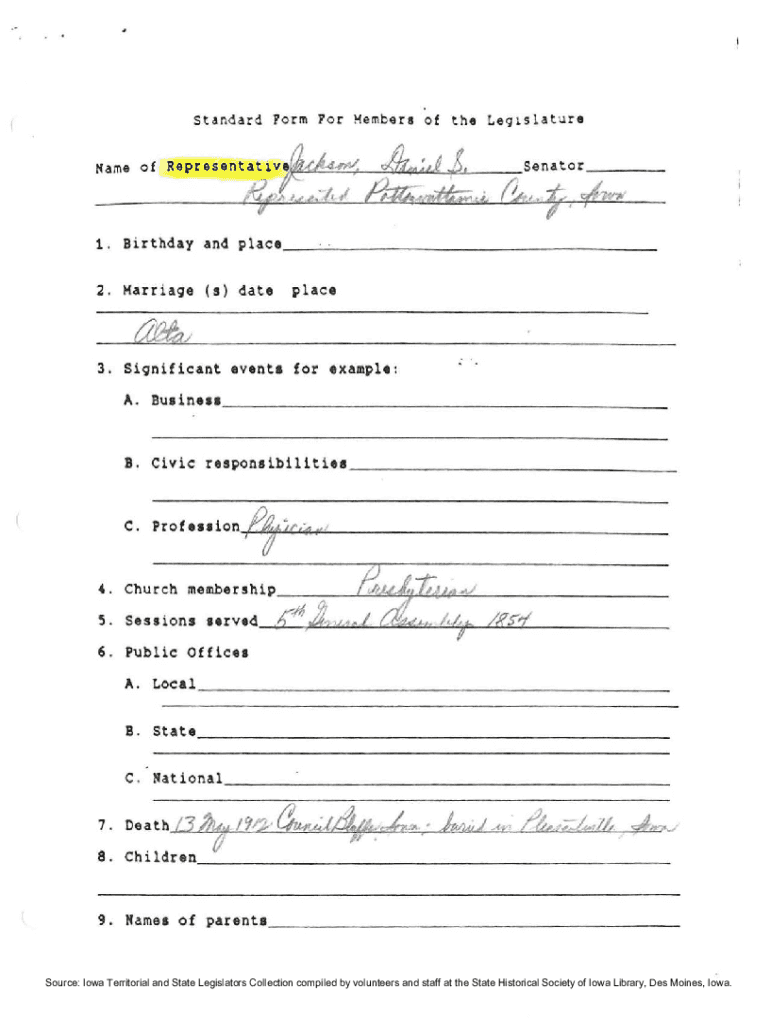 Standard Form For Members of the Legislature
Name of Representative Jackson, Daniel S. Senator
Represented Pottawattamie County, Iowa
1. Birthday and place
2. Marriage (s) date place
Alta
3. Significant events for example:
A. Business
B. Civic responsibilities
C. Profession Physician
4. Church membership Presbyterian
5. Sessions served 5th General Assembly 1854
6. Public Offices
A. Local
B. State
C. National
7. Death 13 May 1912 Council Bluffs, Iowa; buried in Pleasantville, Iowa
8. Children
9. Names of parents
Source: Iowa Territorial and State Legislators Collection compiled by volunteers and staff at the State Historical Society of Iowa Library, Des Moines, Iowa.